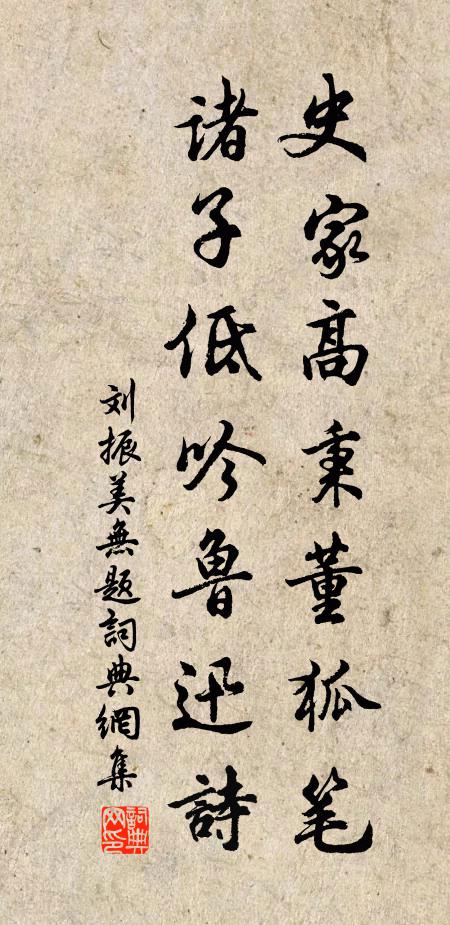 史家高秉董狐笔
诸子低吟鲁迅詩
刘振美無题詞典網集
詞典网印